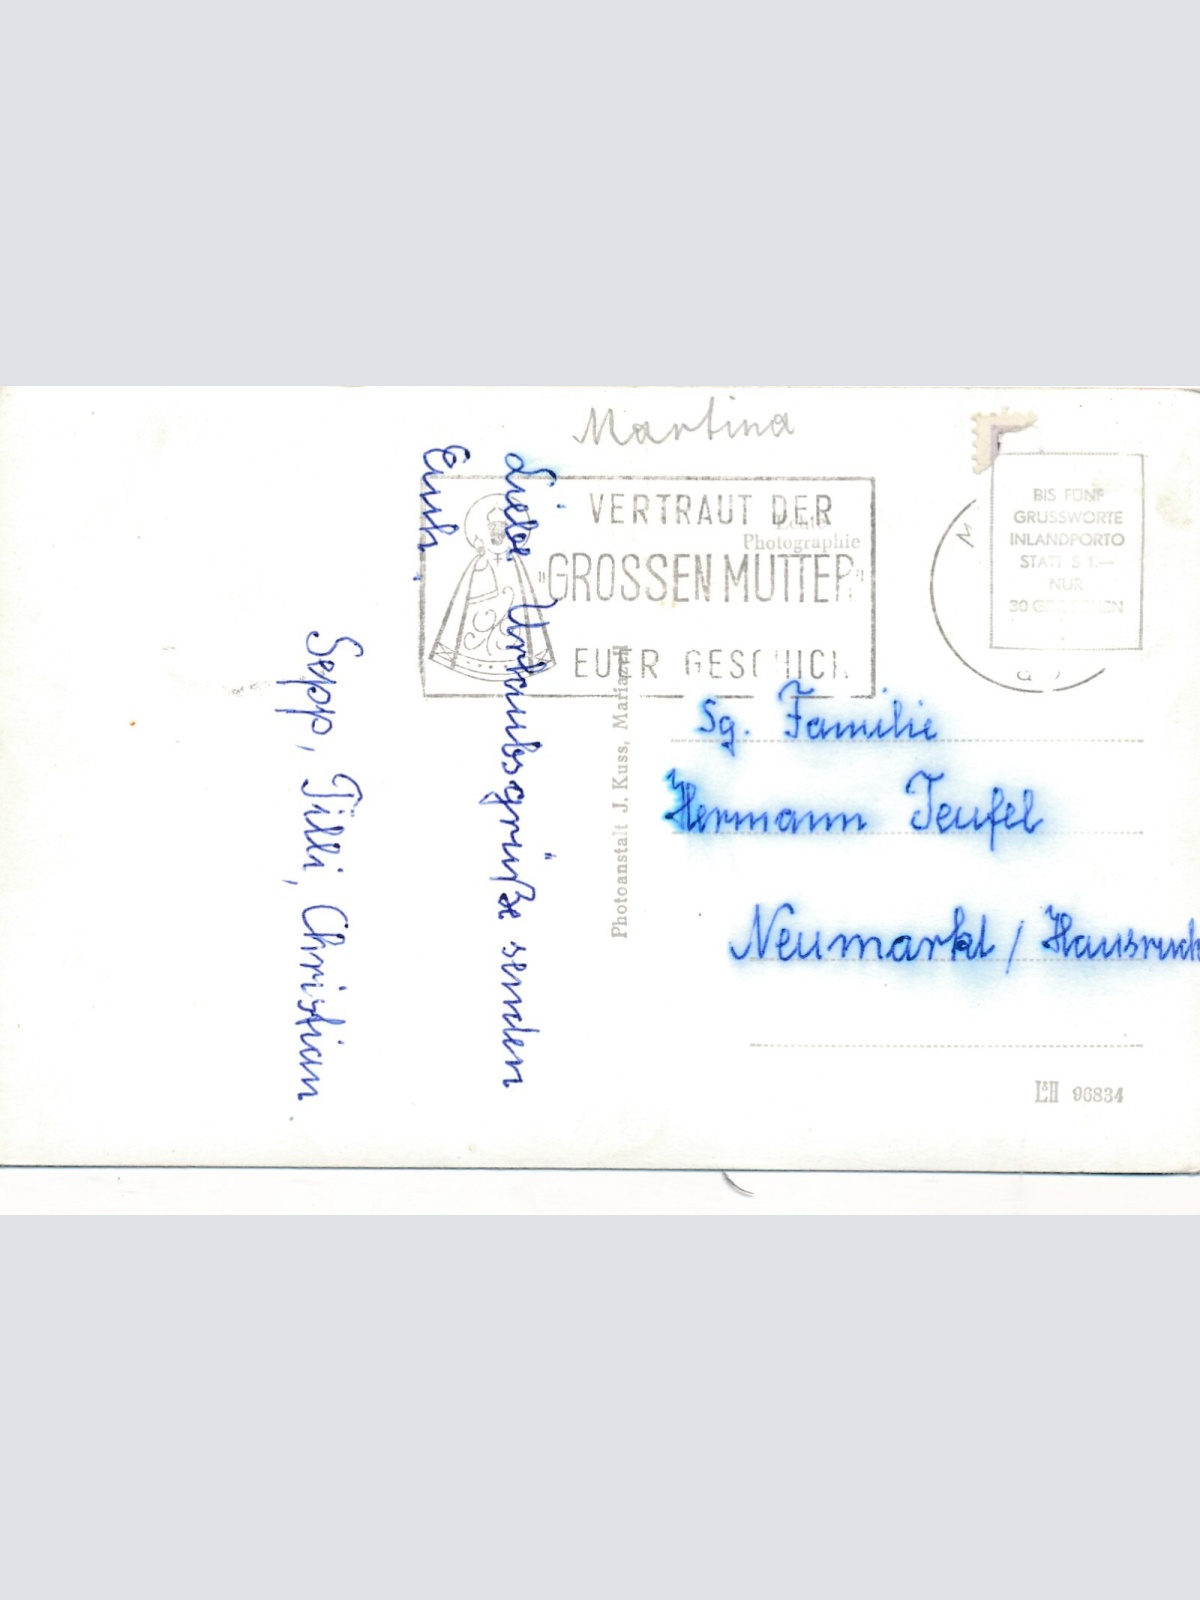 Martina
VERTRAUT DER
"GROSSEN MUTTER"
EUER GESCHICK
Echte
Photographie
BIS FÜNF
GRUSSWORTE
INLANDPORTO
STATT S 1.—
NUR
30 GROSCHEN
Liebe Urlaubsgrüße senden
Euch
Sepp, Tilli, Christian
Photoanstalt J. Kuss, Mariazell
Sg. Familie
Hermann Teufel
Neumarkt / Hausruck
L&H 96834